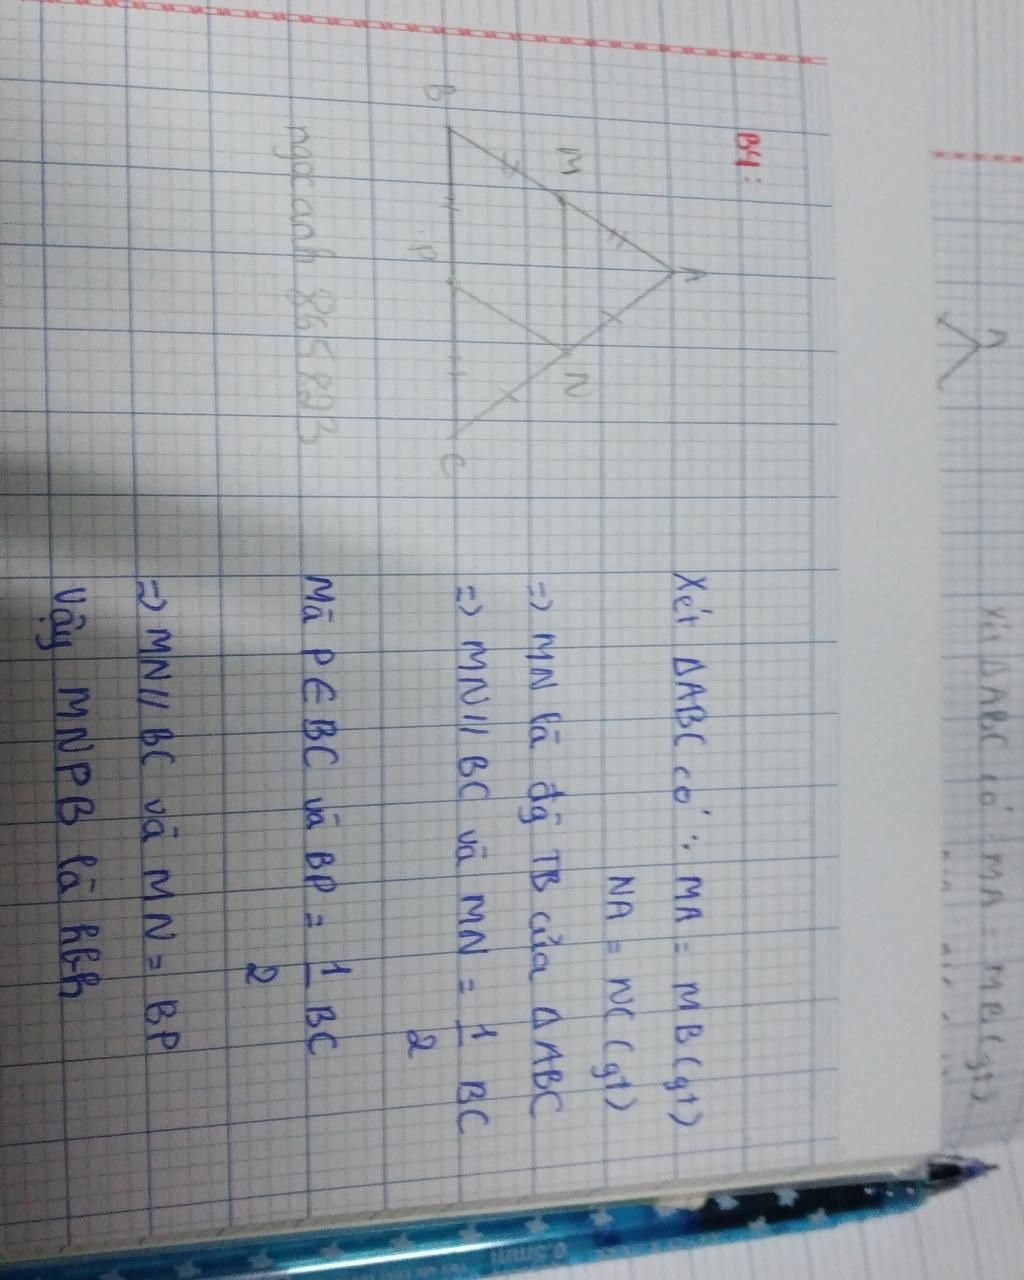 B4:
A
M
N
B
P
C
ngocanh 865823
Xét ΔABC có: MA = MB (gt)
NA = NC (gt)
=> MN là đg TB của ΔABC
=> MN // BC và MN = 1/2 BC
Mà P ∈ BC và BP = 1/2 BC
=> MN // BC và MN = BP
Vậy MNPB là hbh
A
Xét ΔABC có: MA = MB (gt)